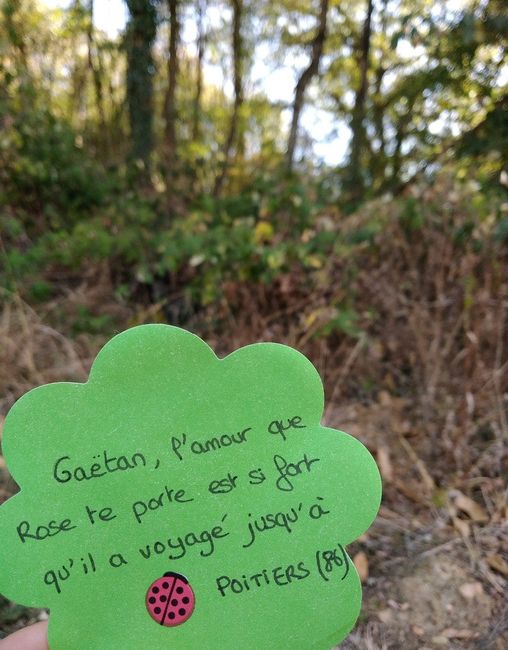 Gaëtan, l'amour que
Rose te porte est si fort
qu'il a voyagé jusqu'à
POITIERS (86)